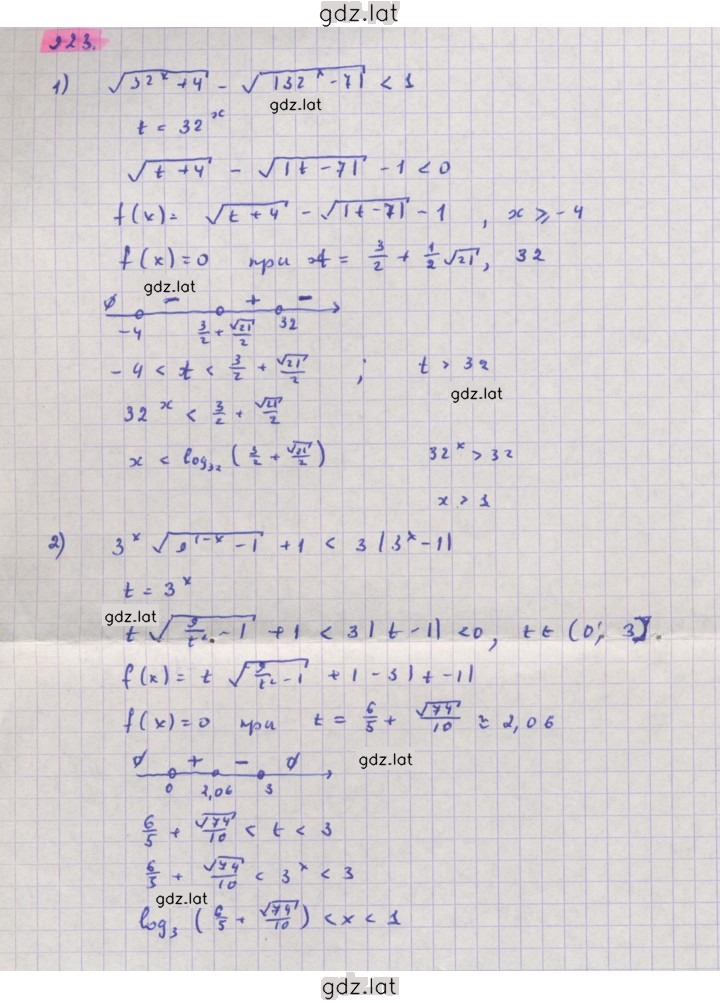 gdz.lat
923.
1) √(32^x + 4) - √(|32^x - 7|) < 1
gdz.lat
t = 32^x
√(t + 4) - √(|t - 7|) - 1 < 0
f(x) = √(t + 4) - √(|t - 7|) - 1 , x ≥ -4
f(x) = 0 при t = 3/2 + 1/2 √21, 32
gdz.lat
∅ - + -
-4 3/2 + √21/2 32
-4 < t < 3/2 + √21/2 ; t > 32
gdz.lat
32^x < 3/2 + √21/2
x < log₃₂ (3/2 + √21/2) 32^x > 32
x > 1
2) 3^x √(9^(1-x) - 1) + 1 < 3|3^x - 1|
t = 3^x
gdz.lat
t √(9/t² - 1) + 1 < 3|t - 1| < 0, t ∈ (0; 3].
f(x) = t √(9/t² - 1) + 1 - 3|t - 1|
f(x) = 0 при t = 6/5 + √74/10 ≈ 2,06
gdz.lat
∅ + - ∅
0 2,06 3
6/5 + √74/10 < t < 3
6/5 + √74/10 < 3^x < 3
gdz.lat
log₃ (6/5 + √74/10) < x < 1
gdz.lat